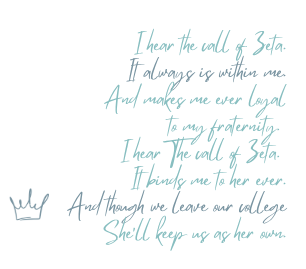 I hear the call of Zeta.
It always is within me.
And makes me ever loyal
to my fraternity.
I hear The call of Zeta.
It binds me to her ever.
And though we leave our college
She'll keep us as her own.